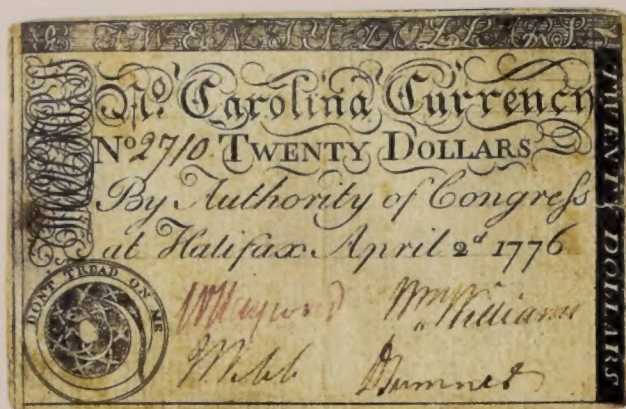 TWENTY DOLLARS
No. Carolina Currency
No 2710. TWENTY DOLLARS
By Authority of Congress
at Halifax April 2d 1776
DONT TREAD ON ME
W Haywood Wm Williams
J Webb J Sumner
TWENTY DOLLARS